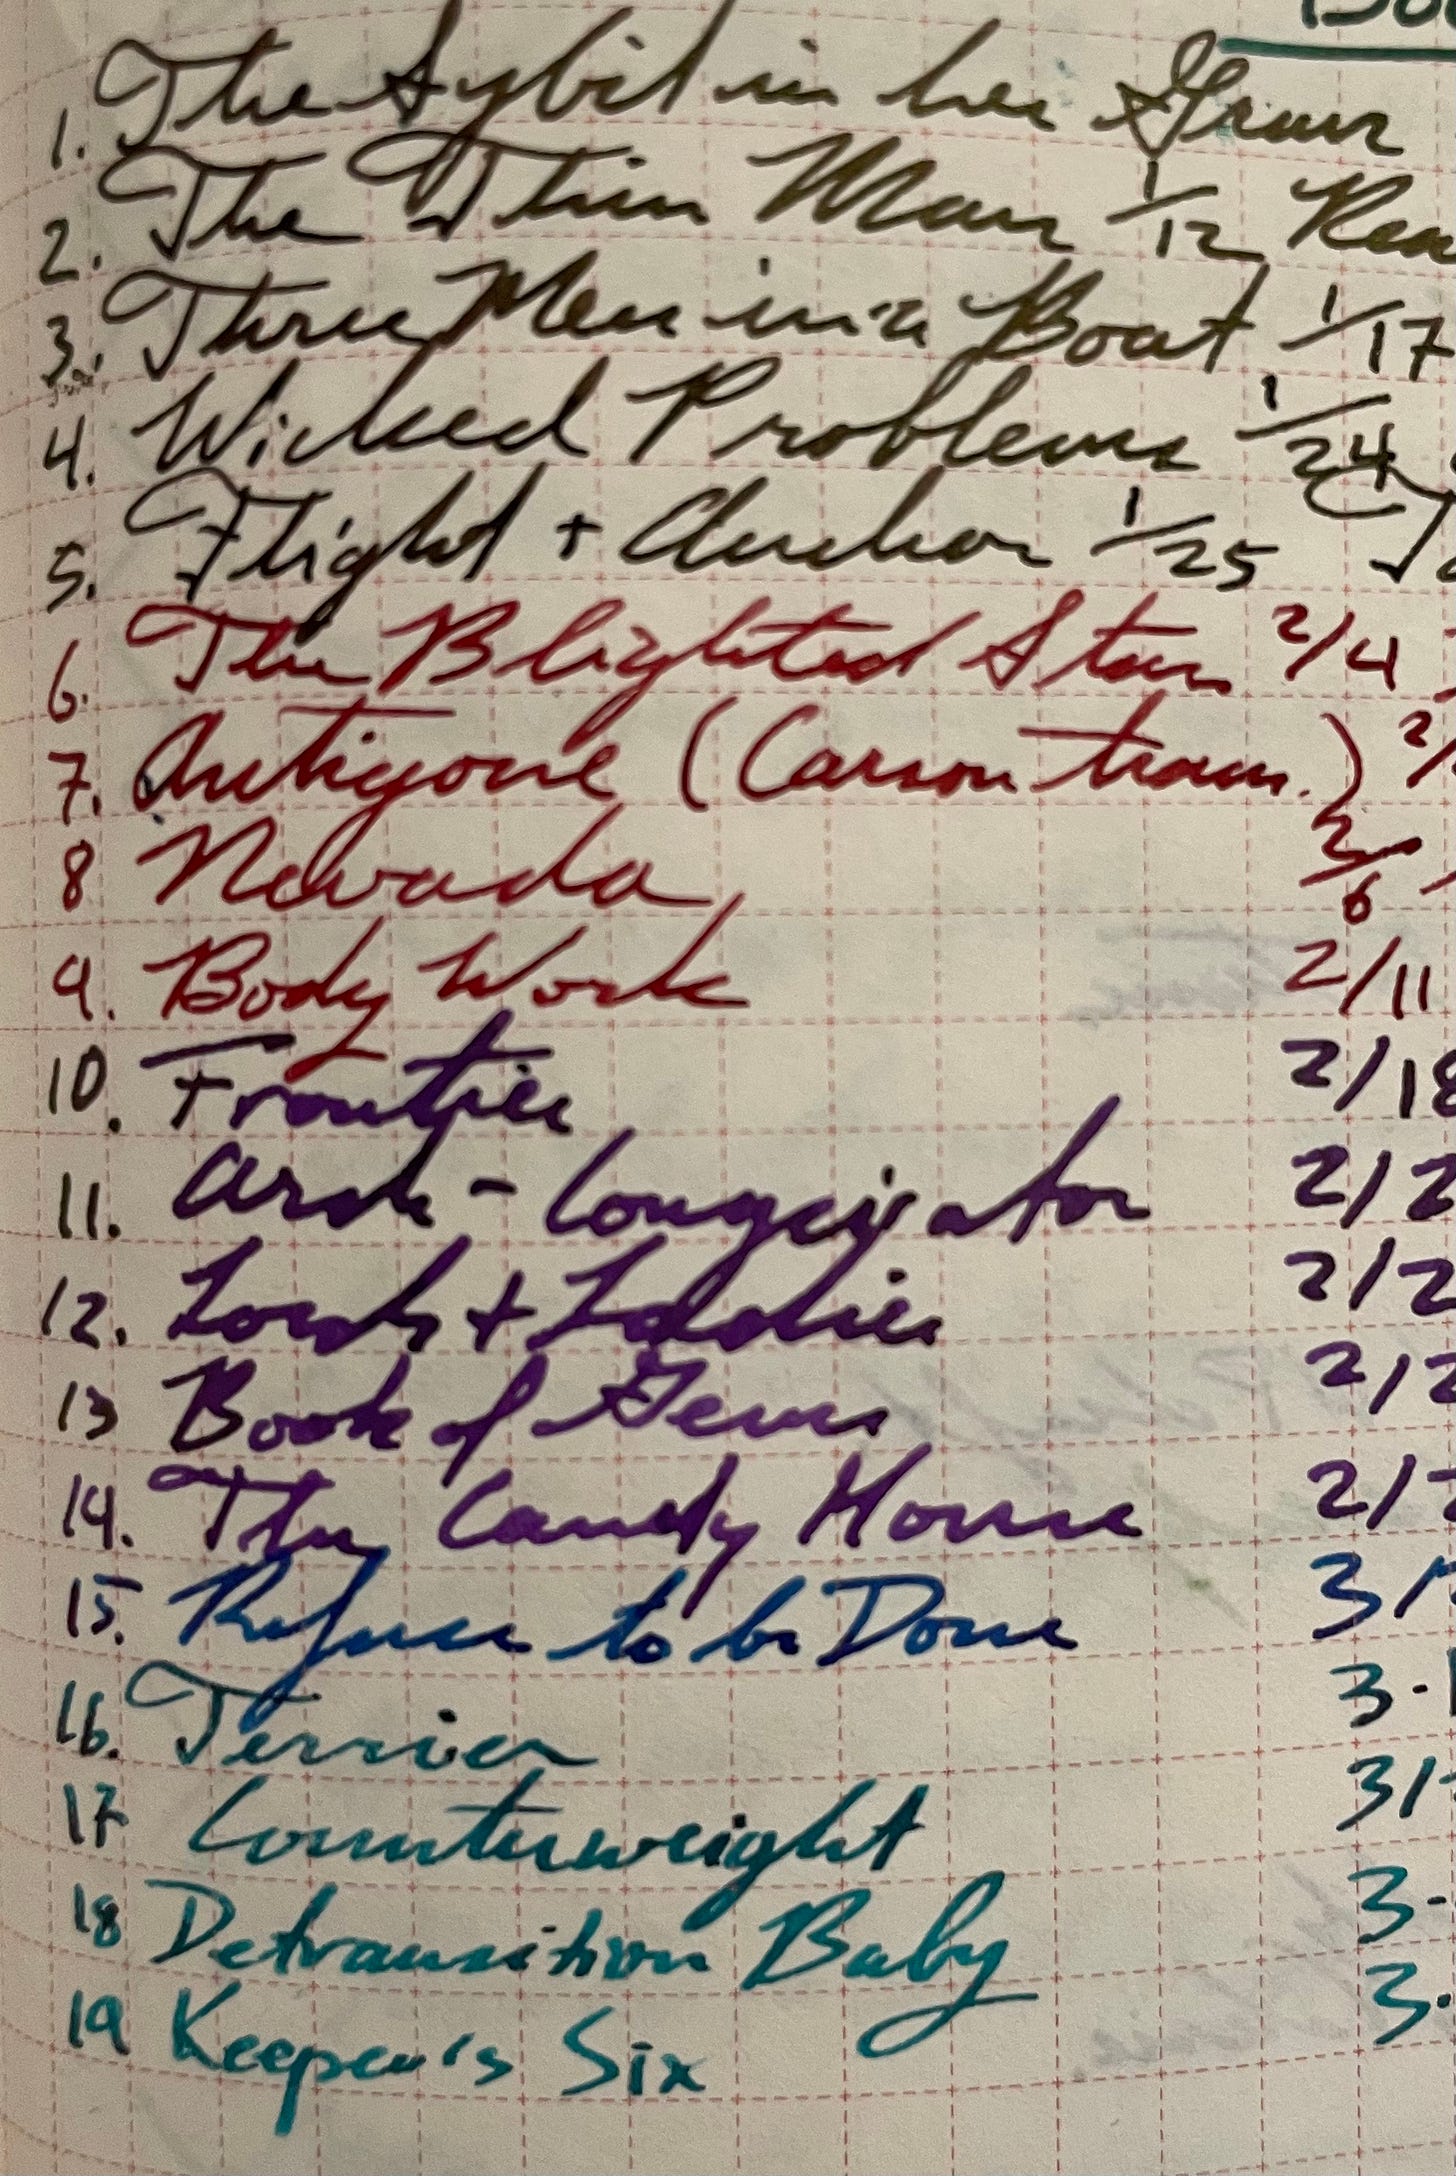 Boo
1. The Sybil in her Grave
2. The Thin Man 1/12 Rea
3. Three Men in a Boat 1/17
4. Wicked Problems 1/24
5. Flight + Anchor 1/25
6. The Blighted Stars 2/4
7. Antigone (Carson trans.) 2/
8 Nevada 2/6
9. Body Work 2/11
10. Frontier 2/18
11. Arch-Conspirator 2/2
12. Lords + Ladies 2/2
13 Book of Gems 2/2
14. The Candy House 2/2
15. Refuse to be Done 3/
16. Terrier 3-1
17 Counterweight 3/
18 Detransition Baby 3-
19 Keeper's Six 3-